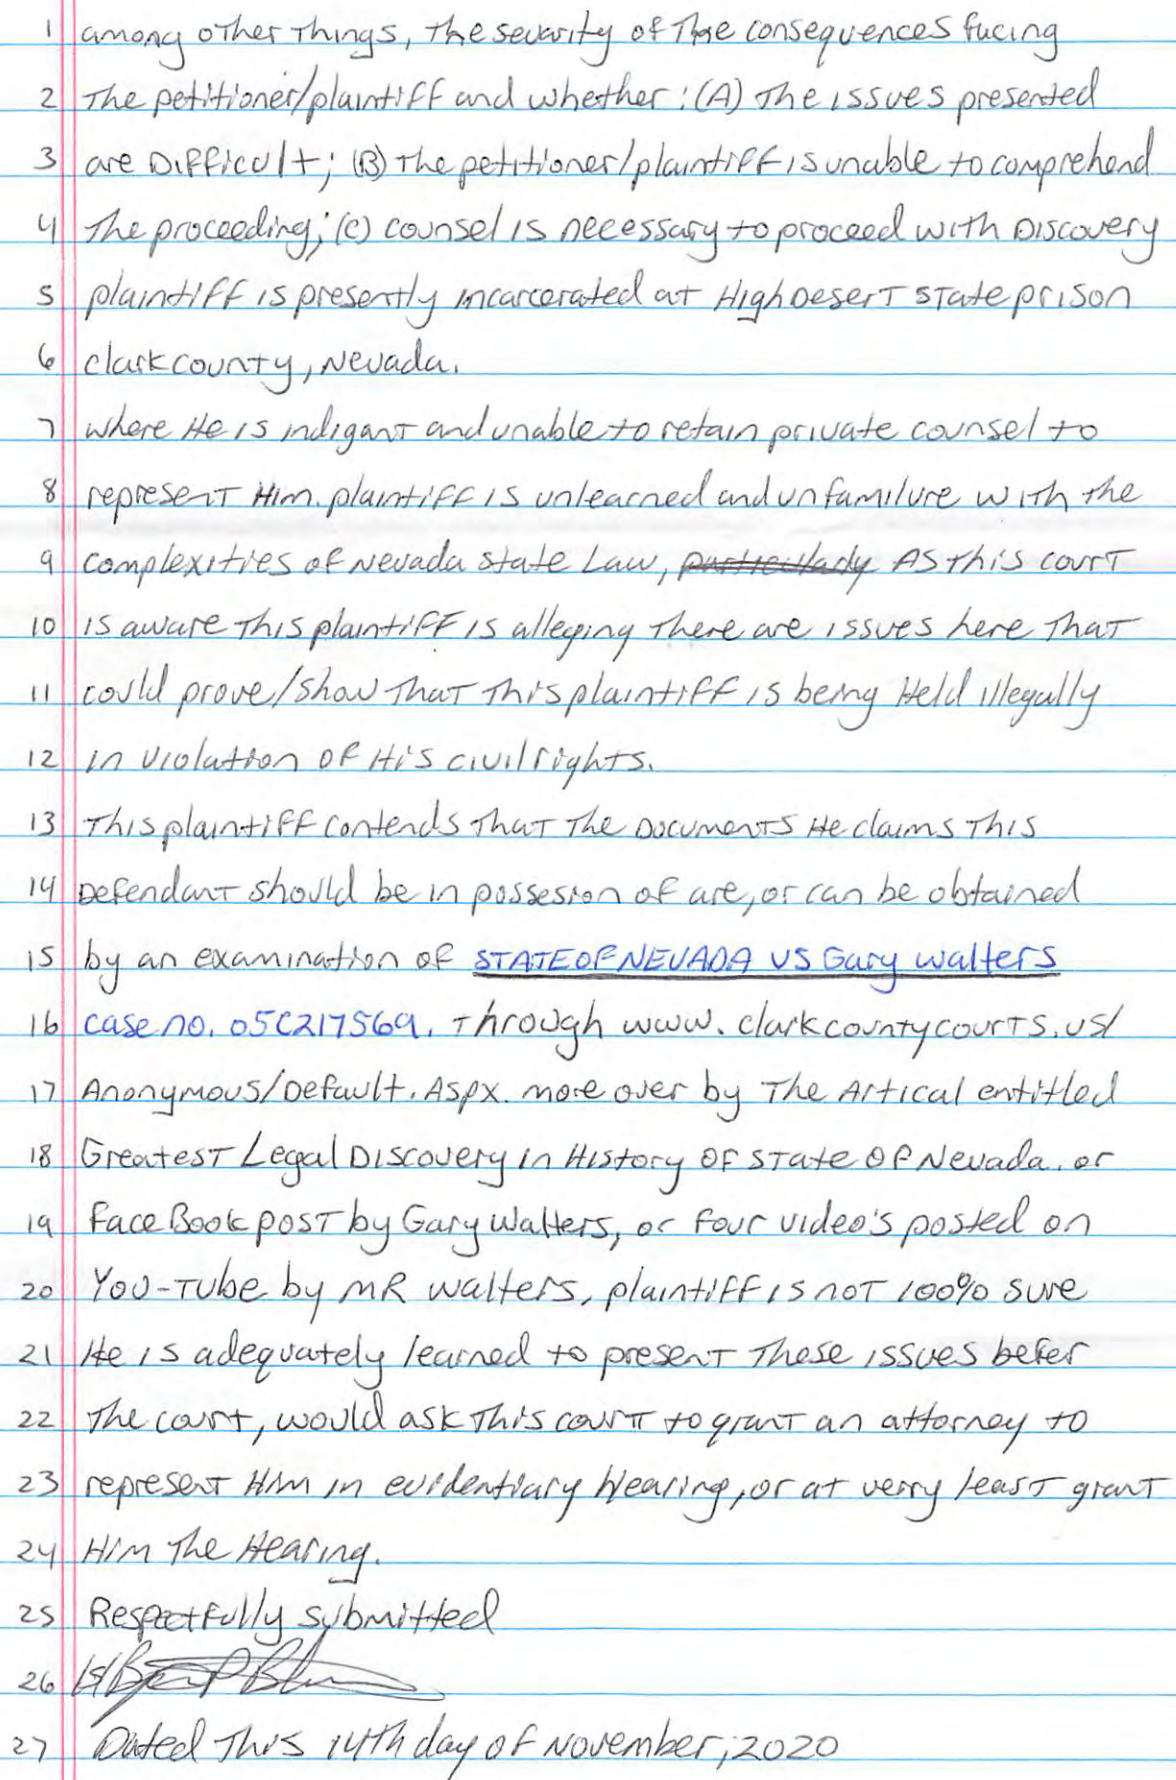 1 among other Things, The severity of The consequences facing
2 The petitioner/plaintiff and whether: (A) The issues presented
3 are Difficult; (B) The petitioner/plaintiff is unable to comprehend
4 The proceeding; (c) counsel is necessary to proceed with Discovery
5 plaintiff is presently incarcerated at High Desert state prison
6 clark county, Nevada.
7 where He is indigant and unable to retain private counsel to
8 represent Him. plaintiff is unlearned and unfamilure with the
9 complexities of Nevada state Law, particularly As this court
10 is aware This plaintiff is alleging There are issues here That
11 could prove/show That This plaintiff is being Held illegally
12 in violation of His civil rights.
13 This plaintiff contends That The Documents He claims This
14 Defendant should be in possesion of are, or can be obtained
15 by an examination of STATE OF NEVADA VS Gary walters
16 case no. 05C217569. Through www.clarkcountycourts.us/
17 Anonymous/Default.Aspx. more over by The Artical entitled
18 Greatest Legal Discovery in History Of state Of Nevada. or
19 FaceBook post by Gary Walters, or four video's posted on
20 You-Tube by MR walters, plaintiff is not 100% sure
21 He is adequately learned to present These issues befer
22 The court, would ask This court to grant an attorney to
23 represent Him in evidentiary Hearing, or at verry least grant
24 Him The Hearing.
25 Respectfully submitted
26 /s/
27 Dated This 14Th day of November, 2020